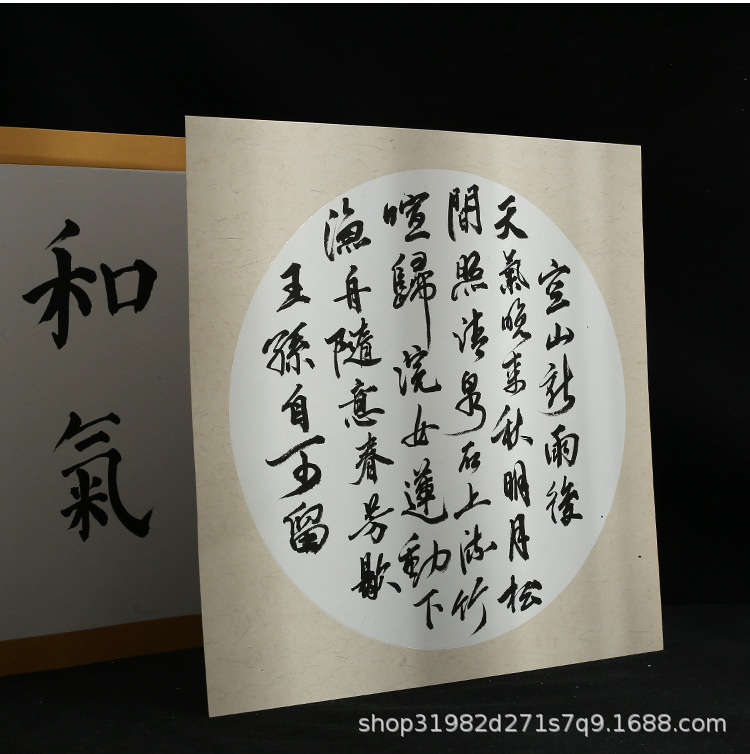 空山新雨後
天氣晚来秋明月松
間照清泉石上流竹
喧歸浣女蓮動下
漁舟隨意春芳歇
王孫自可留
和氣
shop31982d271s7q9.1688.com